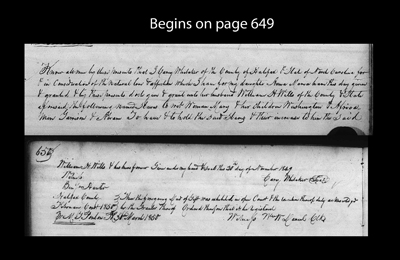 Begins on page 649
Know all men by these presents that I Cary Whitaker of the County of Halifax & State of North Carolina for
& in Consideration of the natural love & affection which I have for my daughter Anna Maria have this day given
& granted & by these presents doth give & grant unto her husband William H. Wills of the County & State
aforesaid, the following named slaves to wit Woman Mary & her children Washington &
Men & To have & to hold the said Mary & their increase to him the said
650
William H. Wills & his heirs forever Given under my hand & seal this 20th day of November 1849
Cary Whitaker (Seal)
Halifax County } Then the foregoing Deed of Gift was exhibited in open Court & the execution thereof duly acknowledged
February Court 1850 } by the Grantor thereof Ordered therefore that it be registered
Witness Clk